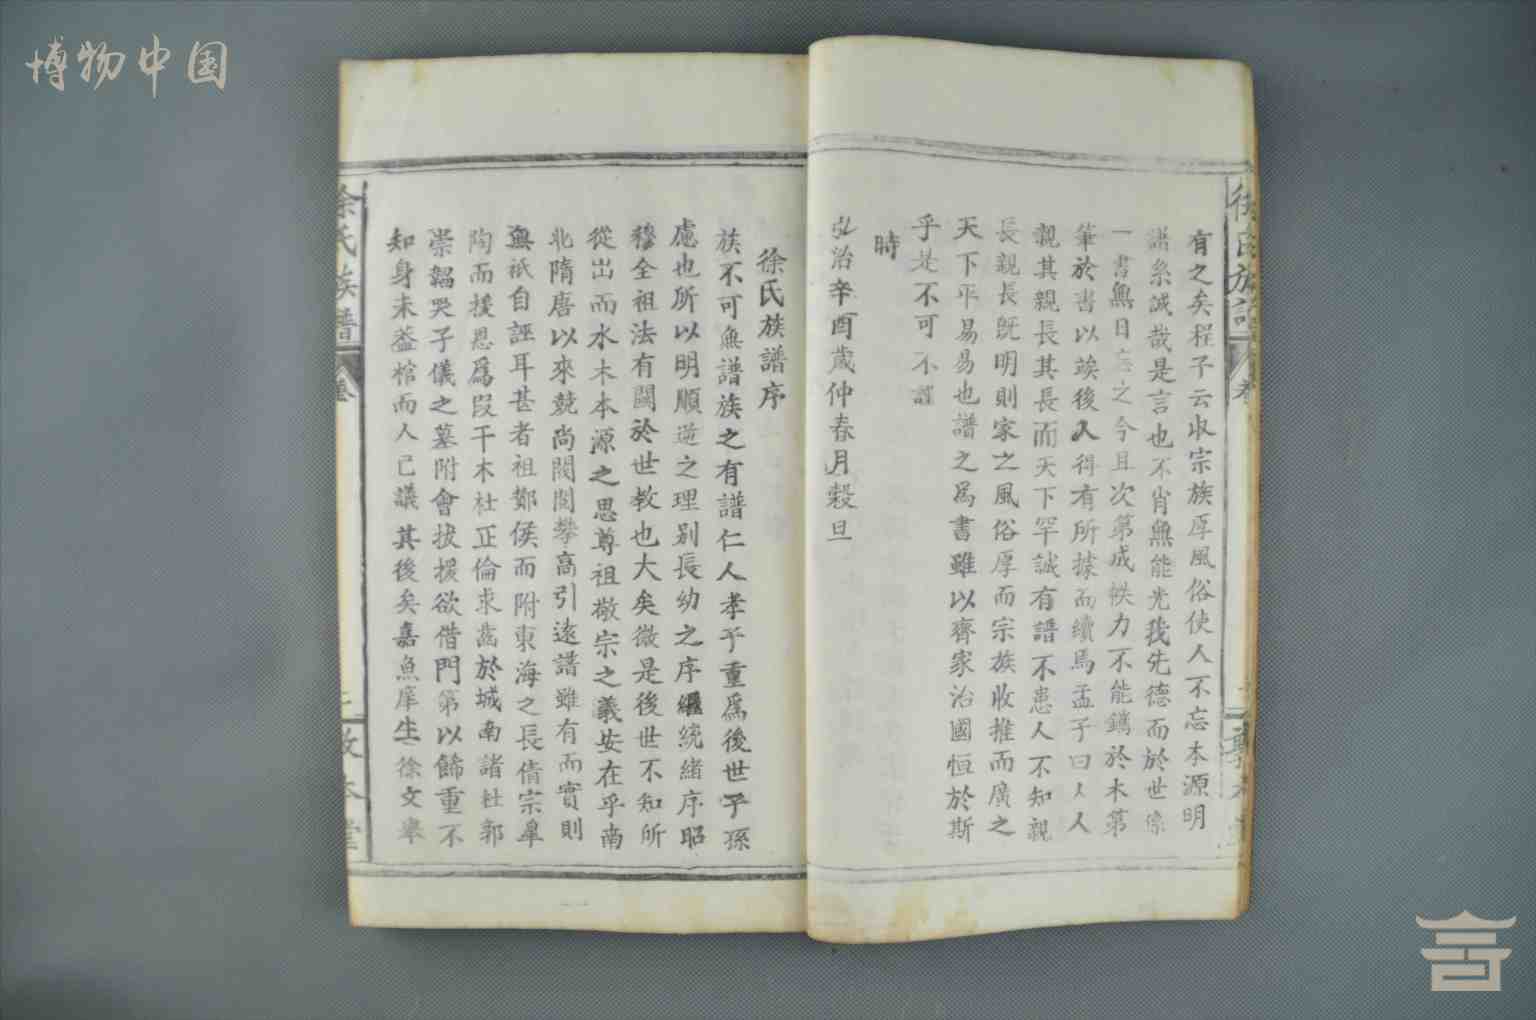 博物中国
徐氏族譜
有之矣程子云收宗族厚風俗使人不忘本源明
譜系誠哉是言也不肖無能光我先德而於世系
一書無日忘之今且次第成帙力不能鐫於木第
筆於書以竢後人得有所據而續焉孟子曰人人
親其親長其長而天下平誠有譜不患人不知親
長親長旣明則家之風俗厚而宗族收推而廣之
天下平易易也譜之爲書雖以齊家治國恒於斯
乎是不可不謹
時
弘治辛酉歲仲春月穀旦
徐氏族譜序
族不可無譜族之有譜仁人孝子重爲後世子孫
慮也所以明順逆之理别長幼之序繼統緒序昭
穆全祖法有關於世教也大矣微是後世不知所
從出而水木本源之思尊祖敬宗之義安在乎南
北隋唐以來競尚閥閱攀高引遠譜雖有而實則
無祇自誣耳甚者祖鄭侯而附東海之長倩宗皐
陶而援恩爲段干木杜正倫求齒於城南諸杜郭
崇韜哭子儀之墓附會拔援欲借門第以餙重不
知身未葢棺而人已議其後矣嘉魚庠生徐文皐
徐氏族譜
卷
二
敦本堂